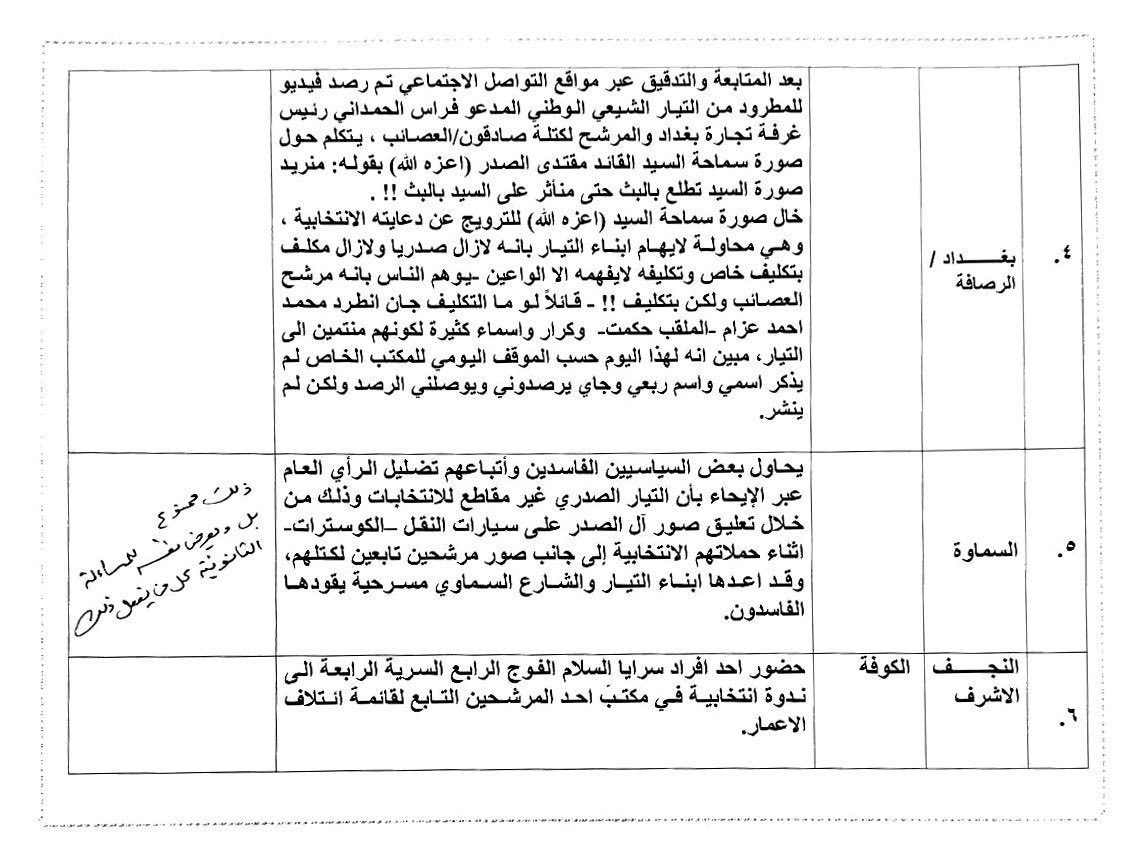 ٤.
بغـــداد /
الرصافة
بعد المتابعة والتدقيق عبر مواقع التواصل الاجتماعي تم رصد فيديو
للمطرود من التيار الشيعي الوطني المدعو فراس الحمداني رئيس
غرفة تجارة بغداد والمرشح لكتلة صادقون/العصائب ، يتكلم حول
صورة سماحة السيد القائد مقتدى الصدر (اعزه الله) بقوله: منريد
صورة السيد تطلع بالبث حتى منأثر على السيد بالبث !! .
خال صورة سماحة السيد (اعزه الله) للترويج عن دعايته الانتخابية ،
وهي محاولة لايهام ابناء التيار بانه لازال صدريا ولازال مكلف
بتكليف خاص وتكليفه لايفهمه الا الواعين -يوهم الناس بانه مرشح
العصائب ولكن بتكليف !! - قائلاً لو ما التكليف جان انطرد محمد
احمد عزام -الملقب حكمت- وكرار واسماء كثيرة لكونهم منتمين الى
التيار، مبين انه لهذا اليوم حسب الموقف اليومي للمكتب الخاص لم
يذكر اسمي واسم ربعي وجاي يرصدوني ويوصلني الرصد ولكن لم
ينشر.
٥.
السماوة
يحاول بعض السياسيين الفاسدين وأتباعهم تضليل الرأي العام
عبر الإيحاء بأن التيار الصدري غير مقاطع للانتخابات وذلك من
خلال تعليق صور آل الصدر على سيارات النقل –الكوسترات-
اثناء حملاتهم الانتخابية إلى جانب صور مرشحين تابعين لكتلهم،
وقد اعدها ابناء التيار والشارع السماوي مسرحية يقودها
الفاسدون.
ذلك ممنوع
بل ويعرض نفسه للمساءلة
القانونية كل من يفعل ذلك
٦.
النجـــف
الاشرف
الكوفة
حضور احد افراد سرايا السلام الفوج الرابع السرية الرابعة الى
ندوة انتخابية في مكتب احد المرشحين التابع لقائمة ائتلاف
الاعمار.